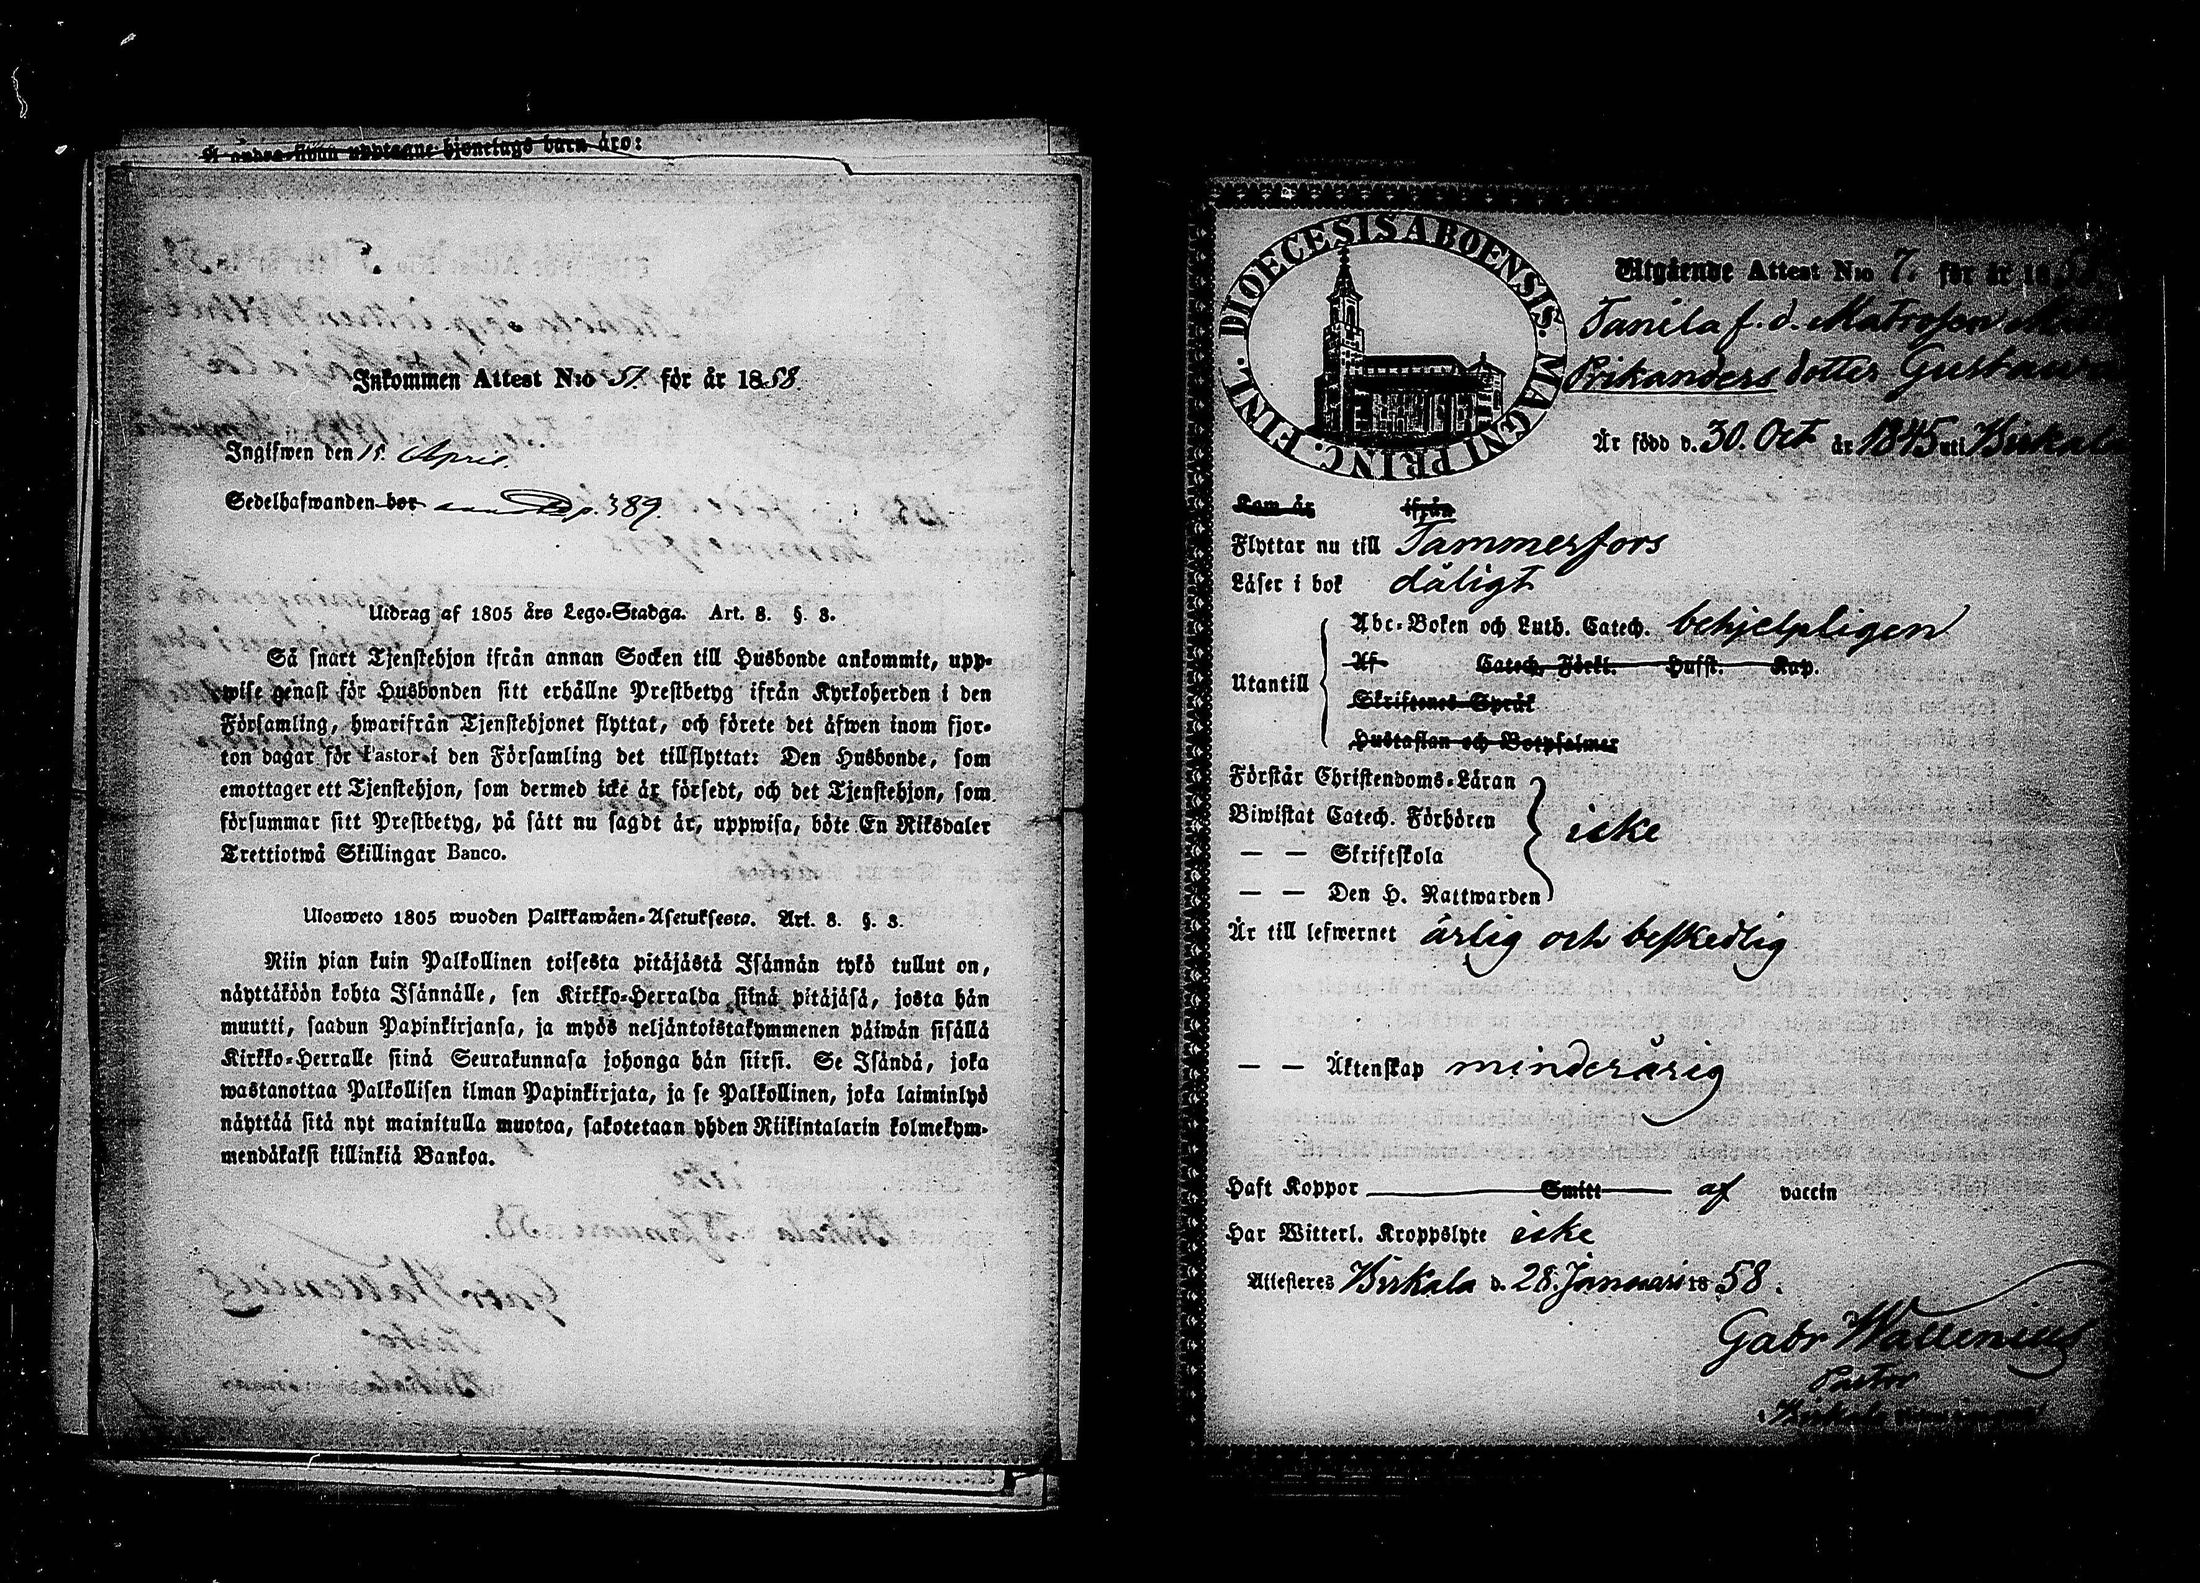 barn äro:
Inkommen Attest N:o 51. för år 1858.
Ingifwen den 15. April.
Sedelhafwanden bor p. 389
Utdrag af 1805 års Lego-Stadga. Art. 8. §. 8.
Så snart Tjenstehjon ifrån annan Socken till Husbonde ankommit, upp-
wise genast för Husbonden sitt erhållne Prestbetyg ifrån Kyrkoherden i den
Församling, hwarifrån Tjenstehjonet flyttat, och förete det äfwen inom fjor-
ton dagar för Pastor i den Församling det tillflyttat: Den Husbonde, som
emottager ett Tjenstehjon, som dermed icke är försedt, och det Tjenstehjon, som
försummar sitt Prestbetyg, på sätt nu sagdt är, uppwisa, böte En Riksdaler
Trettiotwå Skillingar Banco.
Ulosweto 1805 wuoden Palkkawäen-Asetuksesta. Art. 8. §. 8.
Niin pian kuin Palkollinen toisesta pitäjästä Isännän tykö tullut on,
näyttäköön kohta Isännälle, sen Kirkko-Herralda siinä pitäjäsä, josta hän
muutti, saadun Papinkirjansa, ja myös neljäntoistakymmenen päiwän sisällä
Kirkko-Herralle siinä Seurakunnasa johonga hän siirsi. Se Isändä, joka
wastanottaa Palkollisen ilman Papinkirjata, ja se Palkollinen, joka laiminlyö
näyttää sitä nyt mainitulla muotoa, sakotetaan yhden Riikintalarin kolmekym-
mendäkaksi killinkiä Bankoa.
DIOECESIS ABOENSIS. MAGNI PRINC. FINL.
Utgående Attest N:o 7. för år 1858
Tanila f. d. Matrosen
Prikanders dotter Gustawa
Är född d. 30. Oct år 1845 uti Birkala
Kom år ifrån
Flyttar nu till Tammerfors
Läser i bok dåligt
Abc-Boken och Luth. Catech. behjelpligen
Af Catech. Förkl. Hufst. Kap.
Utantill
Skriftenes Språk
Hustaflan och Botpsalmer
Förstår Christendoms-Läran
Biwistat Catech. Förhören icke
— — Skriftskola
— — Den H. Nattwarden
Är till lefwernet ärlig och beskedlig
— — Äktenskap minderårig
Haft Koppor Smitt af vaccin
Har Witterl. Kroppslyte icke
Attesteres Birkala d. 28. Januari 1858.
Gabr Wallenius
Pastor
Birkala